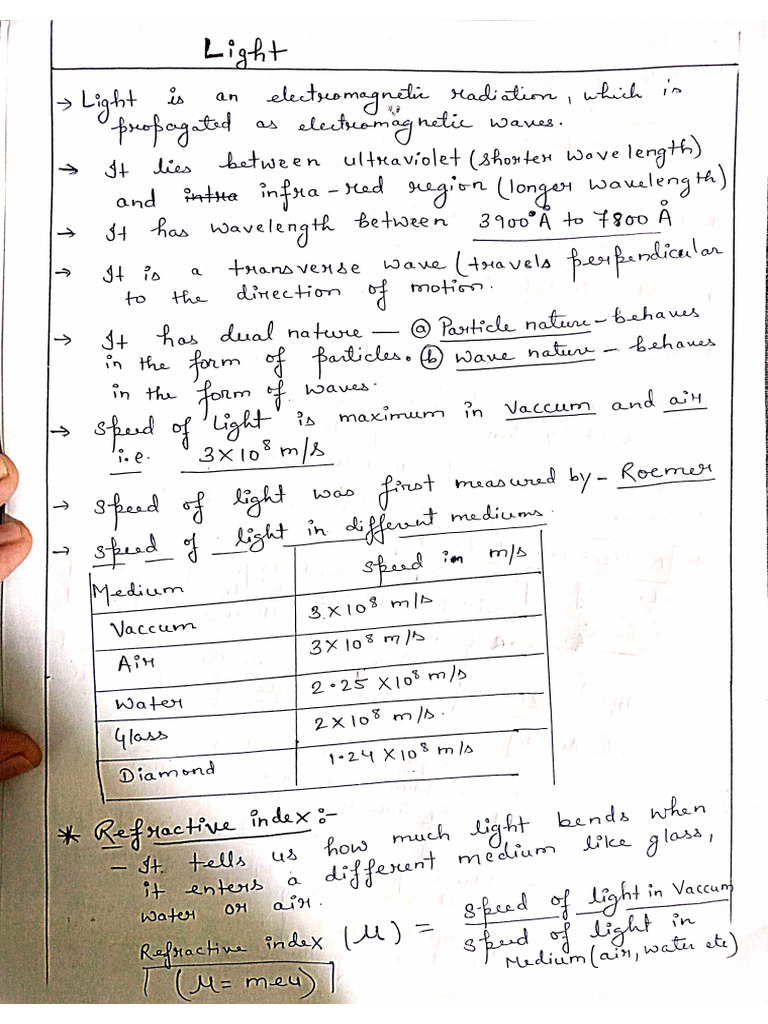 Light
→ Light is an electromagnetic radiation, which is
propagated as electromagnetic waves.
→ It lies between ultraviolet (shorter wave length)
and intra infra-red region (longer wavelength)
→ It has wavelength between 3900°Å to 7800 Å
→ It is a transverse wave (travels perpendicular
to the direction of motion.
→ It has dual nature — ⓐ Particle nature - behaves
in the form of particles. ⓑ wave nature - behaves
in the form of waves.
→ Speed of light is maximum in vaccum and air
i.e. 3×10⁸ m/s
→ speed of light was first measured by - Roemer
→ speed of light in different mediums.
Medium speed in m/s
Vaccum 3×10⁸ m/s
Air 3×10⁸ m/s
Water 2.25 ×10⁸ m/s
Glass 2×10⁸ m/s.
Diamond 1.24 ×10⁸ m/s
* Refractive index:-
- It tells us how much light bends when
it enters a different medium like glass,
water or air.
Refractive index (μ) = speed of light in Vaccum
speed of light in
Medium (air, water etc)
(μ = meu)